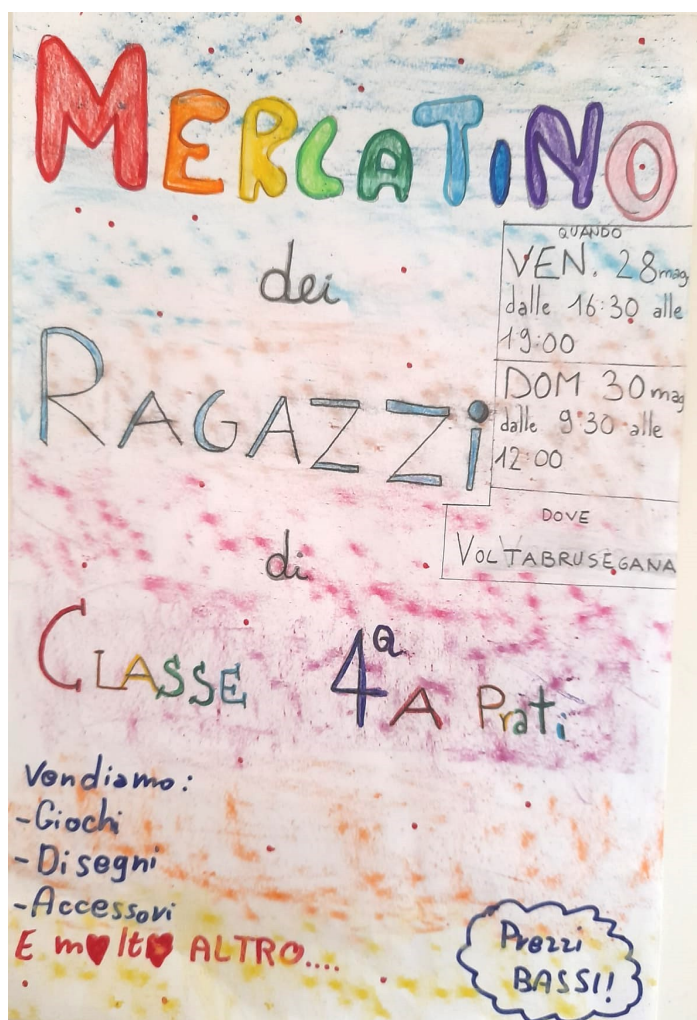 MERCATINO
dei
RAGAZZi
di
CLASSE 4ª A Prati
QUANDO
VEN. 28 mag
dalle 16:30 alle
19:00
DOM 30 mag
dalle 9:30 alle
12:00
DOVE
VOLTABRUSEGANA
Vendiamo:
-Giochi
-Disegni
-Accessori
E m♥lt♥ ALTRO....
Prezzi
BASSI!